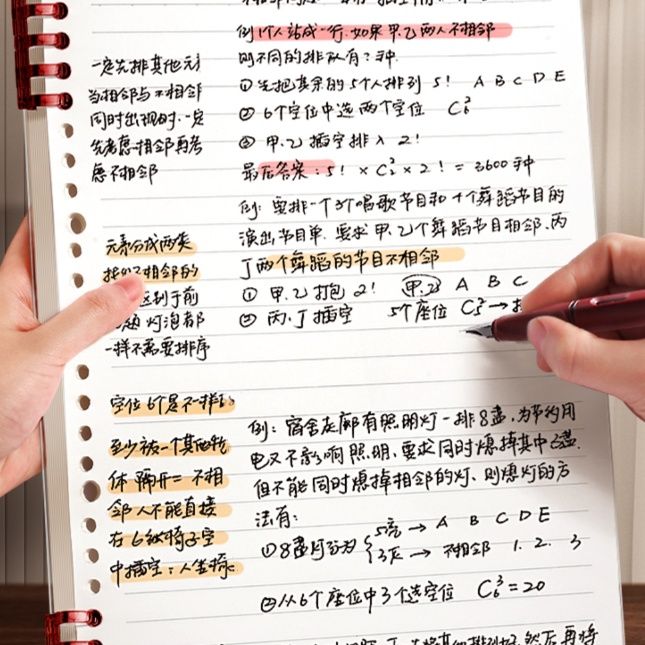 例 7个人站成一行,如果甲.乙两人不相邻
则不同的排队有?种
① 先把其余的5个人排列 5! A B C D E
② 6个空位中选两个空位 C₆²
③ 甲.乙插空排入 2!
最后答案:5! × C₆² × 2! = 3600种
例:要排一个3个唱歌节目和4个舞蹈节目的
演出节目单.要求甲.乙2个舞蹈节目相邻.丙
丁两个舞蹈的节目不相邻
① 甲.乙打包 2! 甲.乙 A B C
② 丙.丁插空 5个座位 C₅² →
例:宿舍走廊有照明灯一排8盏,为节约用
电又不影响照明,要求同时熄掉其中3盏
但不能同时熄掉相邻的灯、则熄灯的方
法有:
①8盏灯分为 5亮 → A B C D E
3灭 → 不相邻 1. 2. 3
②从6个座位中3个选空位 C₆³ = 20
一定先排其他元
当相邻与不相邻
同时出现时.一定
先考虑相邻再考
虑不相邻
元素分成两类
不相邻的
到于前
灯泡都
一样不需要排序
空位6个是不一样的
至少被一个其他物
体隔开=不相
邻人不能直接
在6
中插空:人坐椅